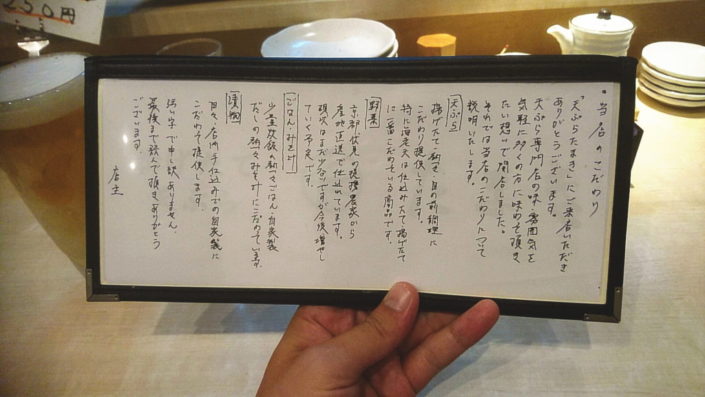 ・当店のこだわり
「天ぷらたまき」にご来店いただき
ありがとうございます。
天ぷら専門店の味、雰囲気を
気軽に多くの方に味わって頂き
たい想いで開店しました。
それでは当店のこだわりについて
説明いたします。
天ぷら
揚げたて・熱々・目の前調理に
こだわり提供しています。
特に海老天は仕込みたて揚げたて
に一番こだわっている商品です。
野菜
京都伏見の提携農家から
産地直送で仕込れています。
現状はまだ少ないですが今後増やし
ていく予定です。
ごはん・みそ汁
少量炊飯の熱々ごはん・自家製
だしの熱々みそ汁にこだわっています。
漬物
日々、店内手仕込みでの自家製に
こだわり提供します。
汚い字で申し訳ありません。
最後まで読んで頂きありがとう
ございます。
店主
250円